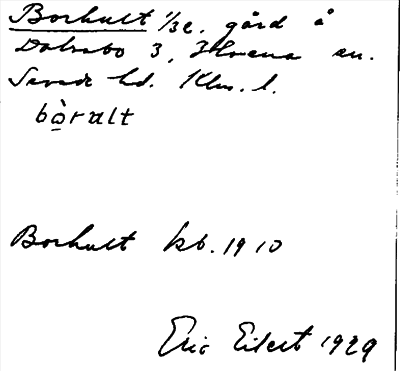 Borhult 1/32. gård å
Dalsebo 3, Hvena sn.
Sevede hd. Klm. l.
bòralt
Borhult kb. 1910
Eric Eilert 1929